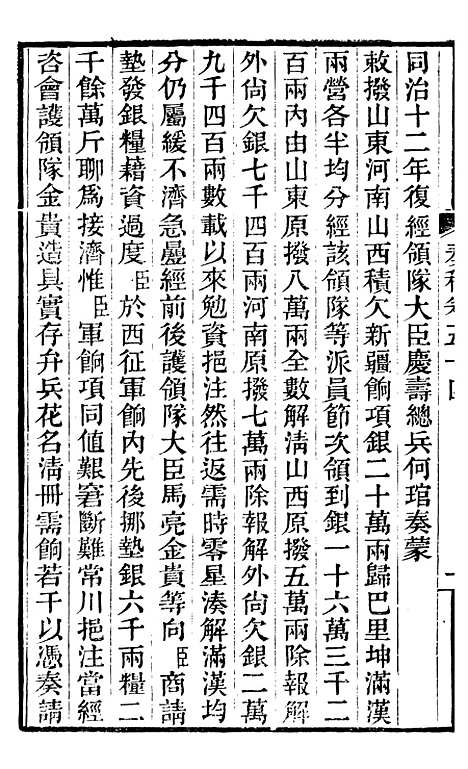 同治十二年復經領隊大臣慶壽總兵何琯奏蒙
敕撥山東河南山西積欠新疆餉項銀二十萬兩歸巴里坤滿漢
兩營各半均分經該領隊等派員節次領到銀一十六萬三千二
百兩內由山東原撥八萬兩全數解清山西原撥五萬兩除報解
外尙欠銀七千四百兩河南原撥七萬兩除報解外尙欠銀二萬
九千四百兩數載以來勉資挹注然往返需時零星湊解滿漢均
分仍屬緩不濟急曡經前後護領隊大臣馬亮金貴等向臣商請
墊發銀糧藉資過度臣於西征軍餉內先後挪墊銀六千兩糧二
千餘萬斤聊爲接濟惟臣軍餉項同値艱窘斷難常川挹注當經
咨會護領隊金貴造具實存弁兵花名淸冊需餉若干以憑奏請
奏稿卷五十四
一